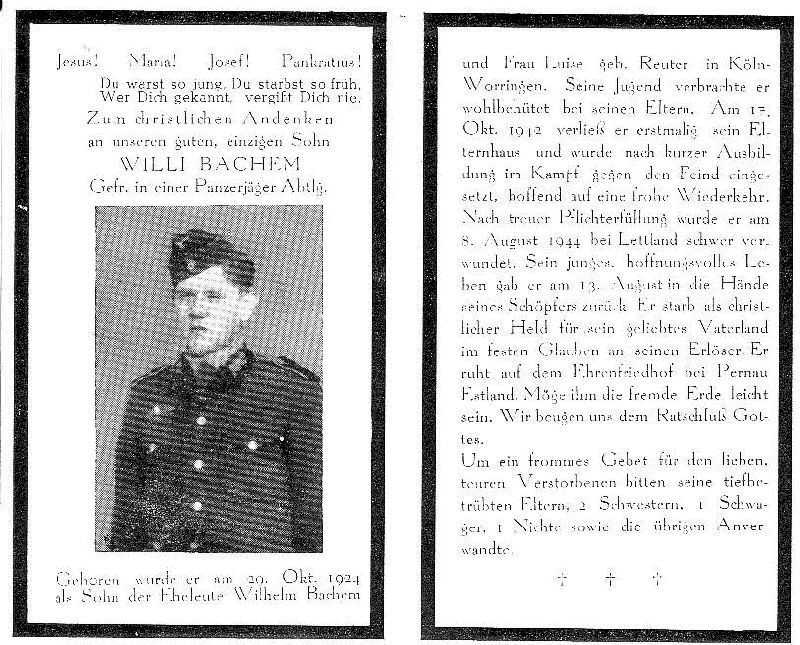 Jesus! Maria! Josef! Pankratius!
Du warst so jung, Du starbst so früh,
Wer Dich gekannt, vergißt Dich nie.
Zum christlichen Andenken
an unseren guten, einzigen Sohn
WILLI BACHEM
Gefr. in einer Panzerjäger Abtlg.
Geboren wurde er am 29. Okt. 1924
als Sohn der Eheleute Wilhelm Bachem
und Frau Luise geb. Reuter in Köln-
Worringen. Seine Jugend verbrachte er
wohlbehütet bei seinen Eltern. Am 17.
Okt. 1942 verließ er erstmalig sein El-
ternhaus und wurde nach kurzer Ausbil-
dung im Kampf gegen den Feind einge-
setzt, hoffend auf eine frohe Wiederkehr.
Nach treuer Pflichterfüllung wurde er am
8. August 1944 bei Lettland schwer ver-
wundet. Sein junges, hoffnungsvolles Le-
ben gab er am 13. August in die Hände
seines Schöpfers zurück. Er starb als christ-
licher Held für sein geliebtes Vaterland
im festen Glauben an seinen Erlöser. Er
ruht auf dem Ehrenfriedhof bei Pernau
Estland. Möge ihm die fremde Erde leicht
sein. Wir beugen uns dem Ratschluß Got-
tes.
Um ein frommes Gebet für den lieben,
teuren Verstorbenen bitten seine tiefbe-
trübten Eltern, 2 Schwestern, 1 Schwa-
ger, 1 Nichte sowie die übrigen Anver-
wandte.